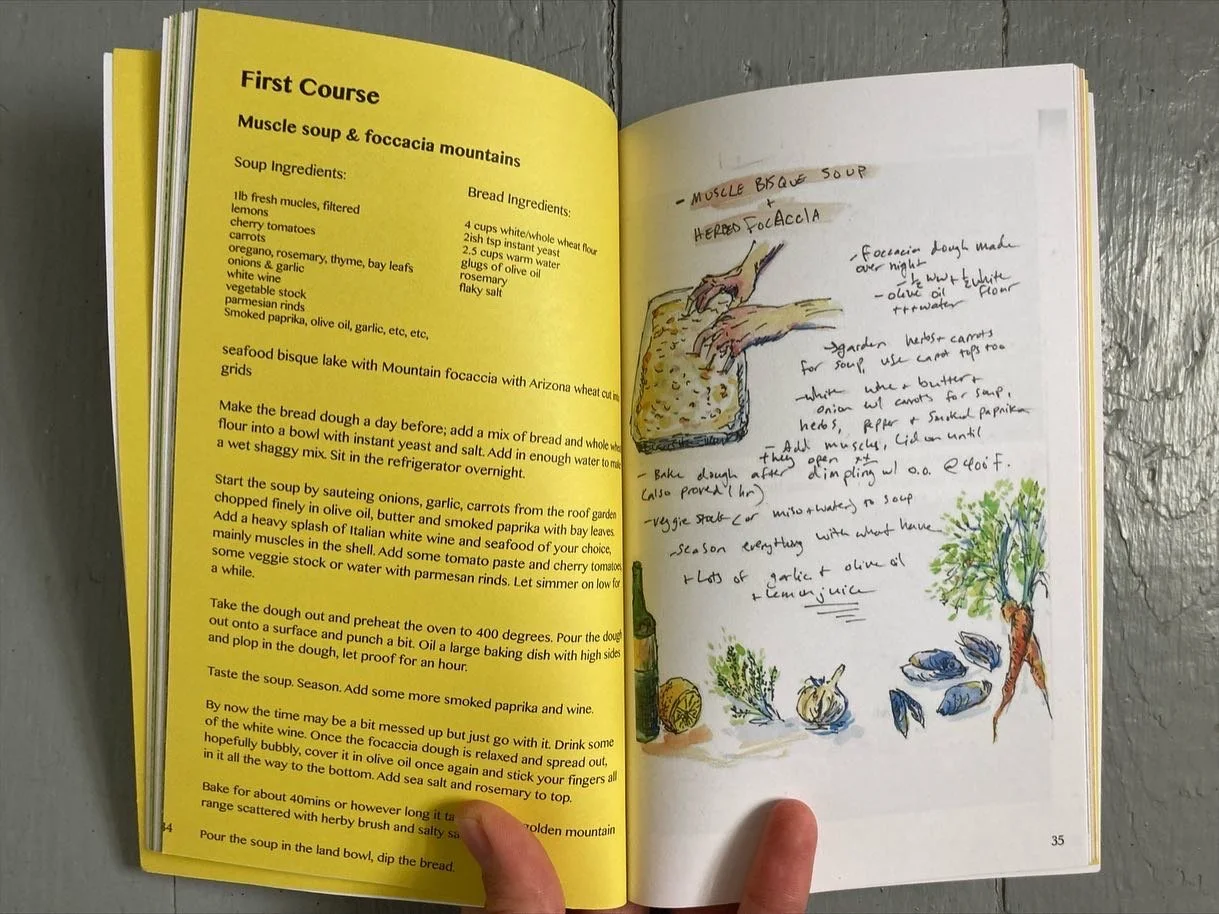 First Course
Muscle soup & foccacia mountains
Soup Ingredients:
1lb fresh mucles, filtered
lemons
cherry tomatoes
carrots
oregano, rosemary, thyme, bay leafs
onions & garlic
white wine
vegetable stock
parmesan rinds
Smoked paprika, olive oil, garlic, etc, etc,
Bread Ingredients:
4 cups white/whole wheat flour
2ish tsp instant yeast
2.5 cups warm water
glugs of olive oil
rosemary
flaky salt
seafood bisque lake with Mountain focaccia with Arizona wheat cut into
grids
Make the bread dough a day before; add a mix of bread and whole
flour into a bowl with instant yeast and salt. Add in enough water to
a wet shaggy mix. Sit in the refrigerator overnight.
Start the soup by sauteing onions, garlic, carrots from the roof garden
chopped finely in olive oil, butter and smoked paprika with bay leaves.
Add a heavy splash of Italian white wine and seafood of your choice,
mainly muscles in the shell. Add some tomato paste and cherry tomatoes,
some veggie stock or water with parmesan rinds. Let simmer on low for
a while.
Take the dough out and preheat the oven to 400 degrees. Pour the dough
out onto a surface and punch a bit. Oil a large baking dish with high sides
and plop in the dough, let proof for an hour.
Taste the soup. Season. Add some more smoked paprika and wine.
By now the time may be a bit messed up but just go with it. Drink some
of the white wine. Once the focaccia dough is relaxed and spread out,
hopefully bubbly, cover it in olive oil once again and stick your fingers all
in it all the way to the bottom. Add sea salt and rosemary to top.
Bake for about 40mins or however long it golden mountain
range scattered with herby brush and salty
Pour the soup in the land bowl, dip the bread.
34
- MUSCLE BISQUE SOUP
+
HERBED FOCACCIA
- Foccacia dough made
over night
- ½ ww + ½ white
flour
- olive oil
+++water
→garden herbs + carrots
for soup, use carrot tops too
- white wine + butter +
onion w/ carrots for soup,
herbs, pepper + smoked paprika
- Add muscles, lid on until
they open
- Bake dough after dimpling w/ o.o. @ 400°F.
(also proved 1 hr)
- veggie stock (or miso + water) to soup
- season everything with what have
+ Lots of garlic + olive oil
+ lemon juice
35